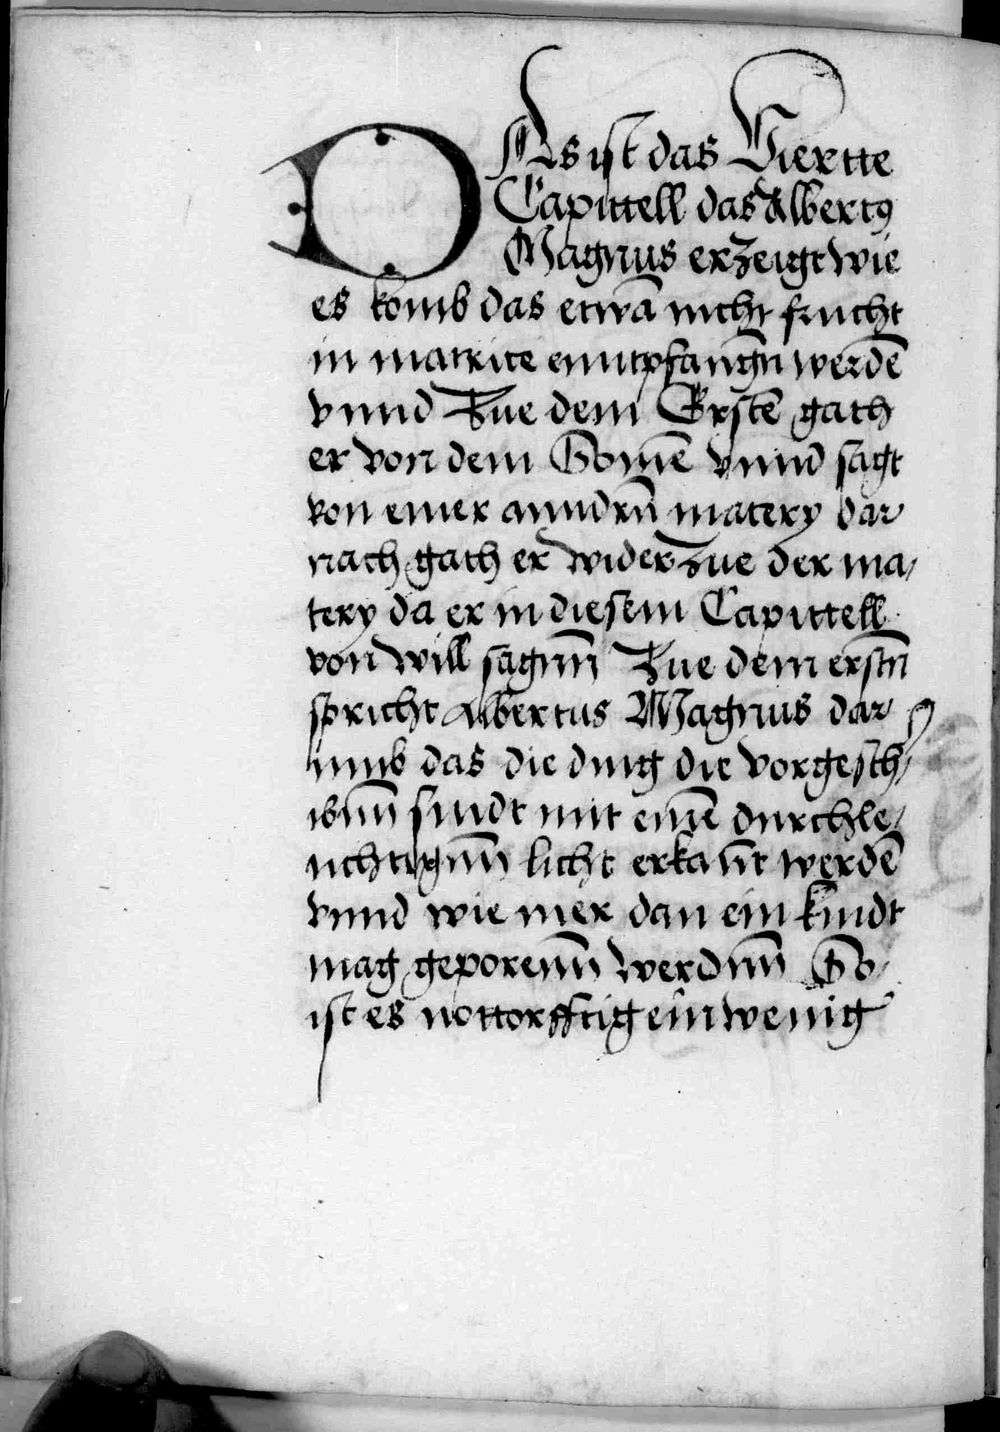 DAs ist das Viertte
Capittell das Albertꝰ
Magnus erzeigt wie
es komb das etwā nicht frucht
in matrice enntpfanngn̄ werdē
vnnd Zue dem Erstē gath
er von dem Somē vnnd sagt
von einer anndrn̄ matery dar
nach gath er wider Zue der ma,
tery da er in diesem Capittell
von will sagnn̄ Zue dem erstn̄
spricht Albertus Magnus dar
umb das die ding die vorgesch,
ibnn̄ sindt mit einē durchle,
uchtignn̄ licht erkannt werdē
vnnd wie mer dan ein kindt
mag geporenn̄ werdnn̄ So
ist es nottorfftig ein wenig